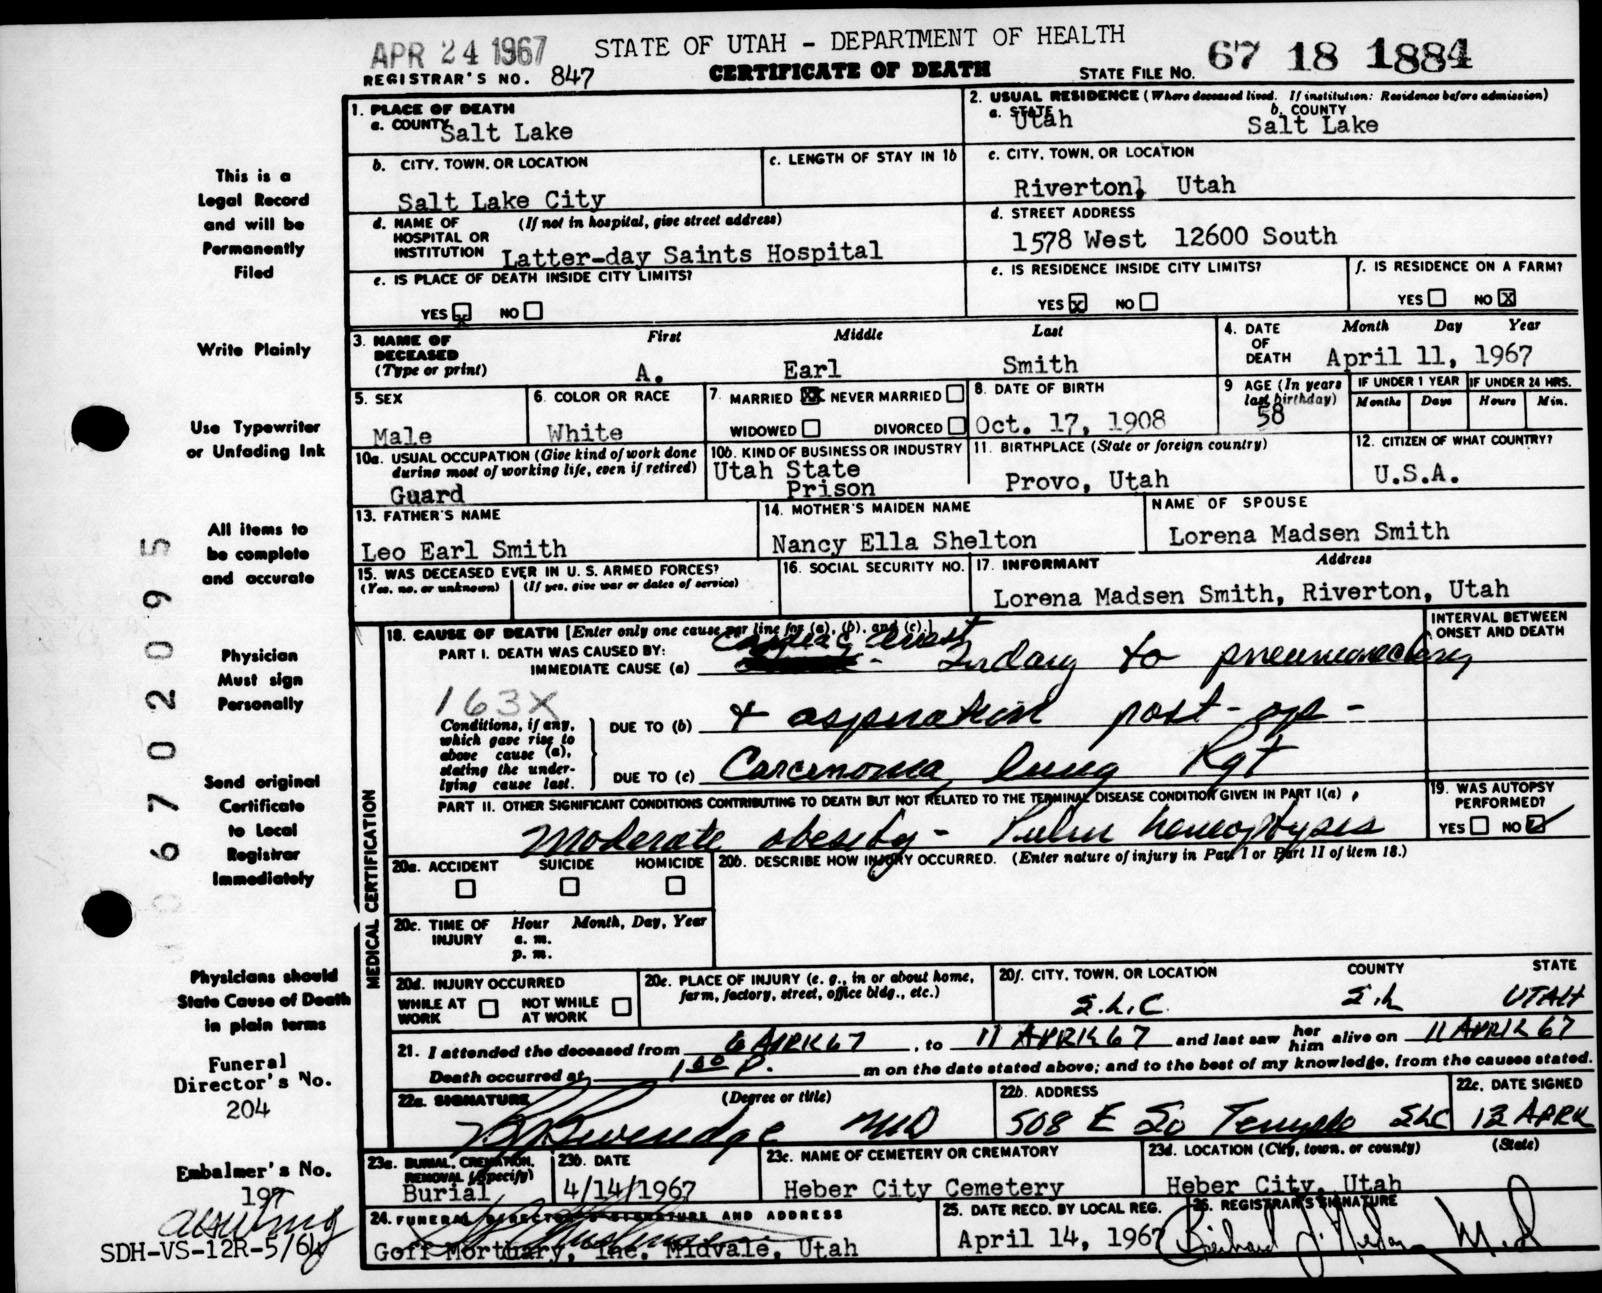 APR 24 1967 STATE OF UTAH - DEPARTMENT OF HEALTH 67 18 1884
REGISTRAR'S NO. 847 CERTIFICATE OF DEATH STATE FILE NO.
This is a
Legal Record
and will be
Permanently
Filed
Write Plainly
Use Typewriter
or Unfading Ink
All items to
be complete
and accurate
Physician
Must sign
Personally
Send original
Certificate
to Local
Registrar
Immediately
Physicians should
State Cause of Death
in plain terms
Funeral
Director's No.
204
Embalmer's No.
197
SDH-VS-12R-5/64
06702095
1. PLACE OF DEATH
a. COUNTY Salt Lake
2. USUAL RESIDENCE (Where deceased lived. If institution: Residence before admission)
a. STATE Utah b. COUNTY Salt Lake
b. CITY, TOWN, OR LOCATION
Salt Lake City
c. LENGTH OF STAY IN 1b
c. CITY, TOWN, OR LOCATION
Riverton, Utah
d. NAME OF HOSPITAL OR INSTITUTION (If not in hospital, give street address)
Latter-day Saints Hospital
d. STREET ADDRESS
1578 West 12600 South
e. IS PLACE OF DEATH INSIDE CITY LIMITS?
YES x NO
e. IS RESIDENCE INSIDE CITY LIMITS?
YES x NO
f. IS RESIDENCE ON A FARM?
YES NO x
3. NAME OF DECEASED (Type or print)
First Middle Last
A. Earl Smith
4. DATE OF DEATH Month Day Year
April 11, 1967
5. SEX
Male
6. COLOR OR RACE
White
7. MARRIED XX NEVER MARRIED
WIDOWED DIVORCED
8. DATE OF BIRTH
Oct. 17, 1908
9 AGE (In years last birthday)
58
IF UNDER 1 YEAR
Months Days
IF UNDER 24 HRS.
Hours Min.
10a. USUAL OCCUPATION (Give kind of work done during most of working life, even if retired)
Guard
10b. KIND OF BUSINESS OR INDUSTRY
Utah State
Prison
11. BIRTHPLACE (State or foreign country)
Provo, Utah
12. CITIZEN OF WHAT COUNTRY?
U.S.A.
13. FATHER'S NAME
Leo Earl Smith
14. MOTHER'S MAIDEN NAME
Nancy Ella Shelton
NAME OF SPOUSE
Lorena Madsen Smith
15. WAS DECEASED EVER IN U. S. ARMED FORCES?
(Yes, no, or unknown) (If yes, give war or dates of service)
16. SOCIAL SECURITY NO.
17. INFORMANT Address
Lorena Madsen Smith, Riverton, Utah
MEDICAL CERTIFICATION
18. CAUSE OF DEATH [Enter only one cause per line for (a), (b), and (c).]
INTERVAL BETWEEN ONSET AND DEATH
PART I. DEATH WAS CAUSED BY:
IMMEDIATE CAUSE (a) Cardiac arrest - 2ndary to pneumonectomy
163X
Conditions, if any, which gave rise to above cause (a), stating the underlying cause last.
DUE TO (b) + aspiration post-op -
DUE TO (c) Carcinoma lung Rgt
PART II. OTHER SIGNIFICANT CONDITIONS CONTRIBUTING TO DEATH BUT NOT RELATED TO THE TERMINAL DISEASE CONDITION GIVEN IN PART I(a)
Moderate obesity - Pulm hemoptysis
19. WAS AUTOPSY PERFORMED?
YES NO ✓
20a. ACCIDENT SUICIDE HOMICIDE
20b. DESCRIBE HOW INJURY OCCURRED. (Enter nature of injury in Part I or Part II of item 18.)
20c. TIME OF INJURY Hour Month, Day, Year
a. m.
p. m.
20d. INJURY OCCURRED
WHILE AT WORK NOT WHILE AT WORK
20e. PLACE OF INJURY (e. g., in or about home, farm, factory, street, office bldg., etc.)
20f. CITY, TOWN, OR LOCATION COUNTY STATE
S.L.C. S.L UTAH
21. I attended the deceased from 6 APRIL 67, to 11 APRIL 67 and last saw her him alive on 11 APRIL 67
Death occurred at 1:00 P. m on the date stated above; and to the best of my knowledge, from the causes stated.
22a. SIGNATURE (Degree or title)
Beveridge MD
22b. ADDRESS
508 E So Temple SLC
22c. DATE SIGNED
12 APRIL
23a. BURIAL, CREMATION, REMOVAL (Specify)
Burial
23b. DATE
4/14/1967
23c. NAME OF CEMETERY OR CREMATORY
Heber City Cemetery
23d. LOCATION (City, town, or county) (State)
Heber City, Utah
24. FUNERAL DIRECTOR'S SIGNATURE AND ADDRESS
Goff Mortuary, Inc. Midvale, Utah
25. DATE RECD. BY LOCAL REG.
April 14, 1967
26. REGISTRAR'S SIGNATURE